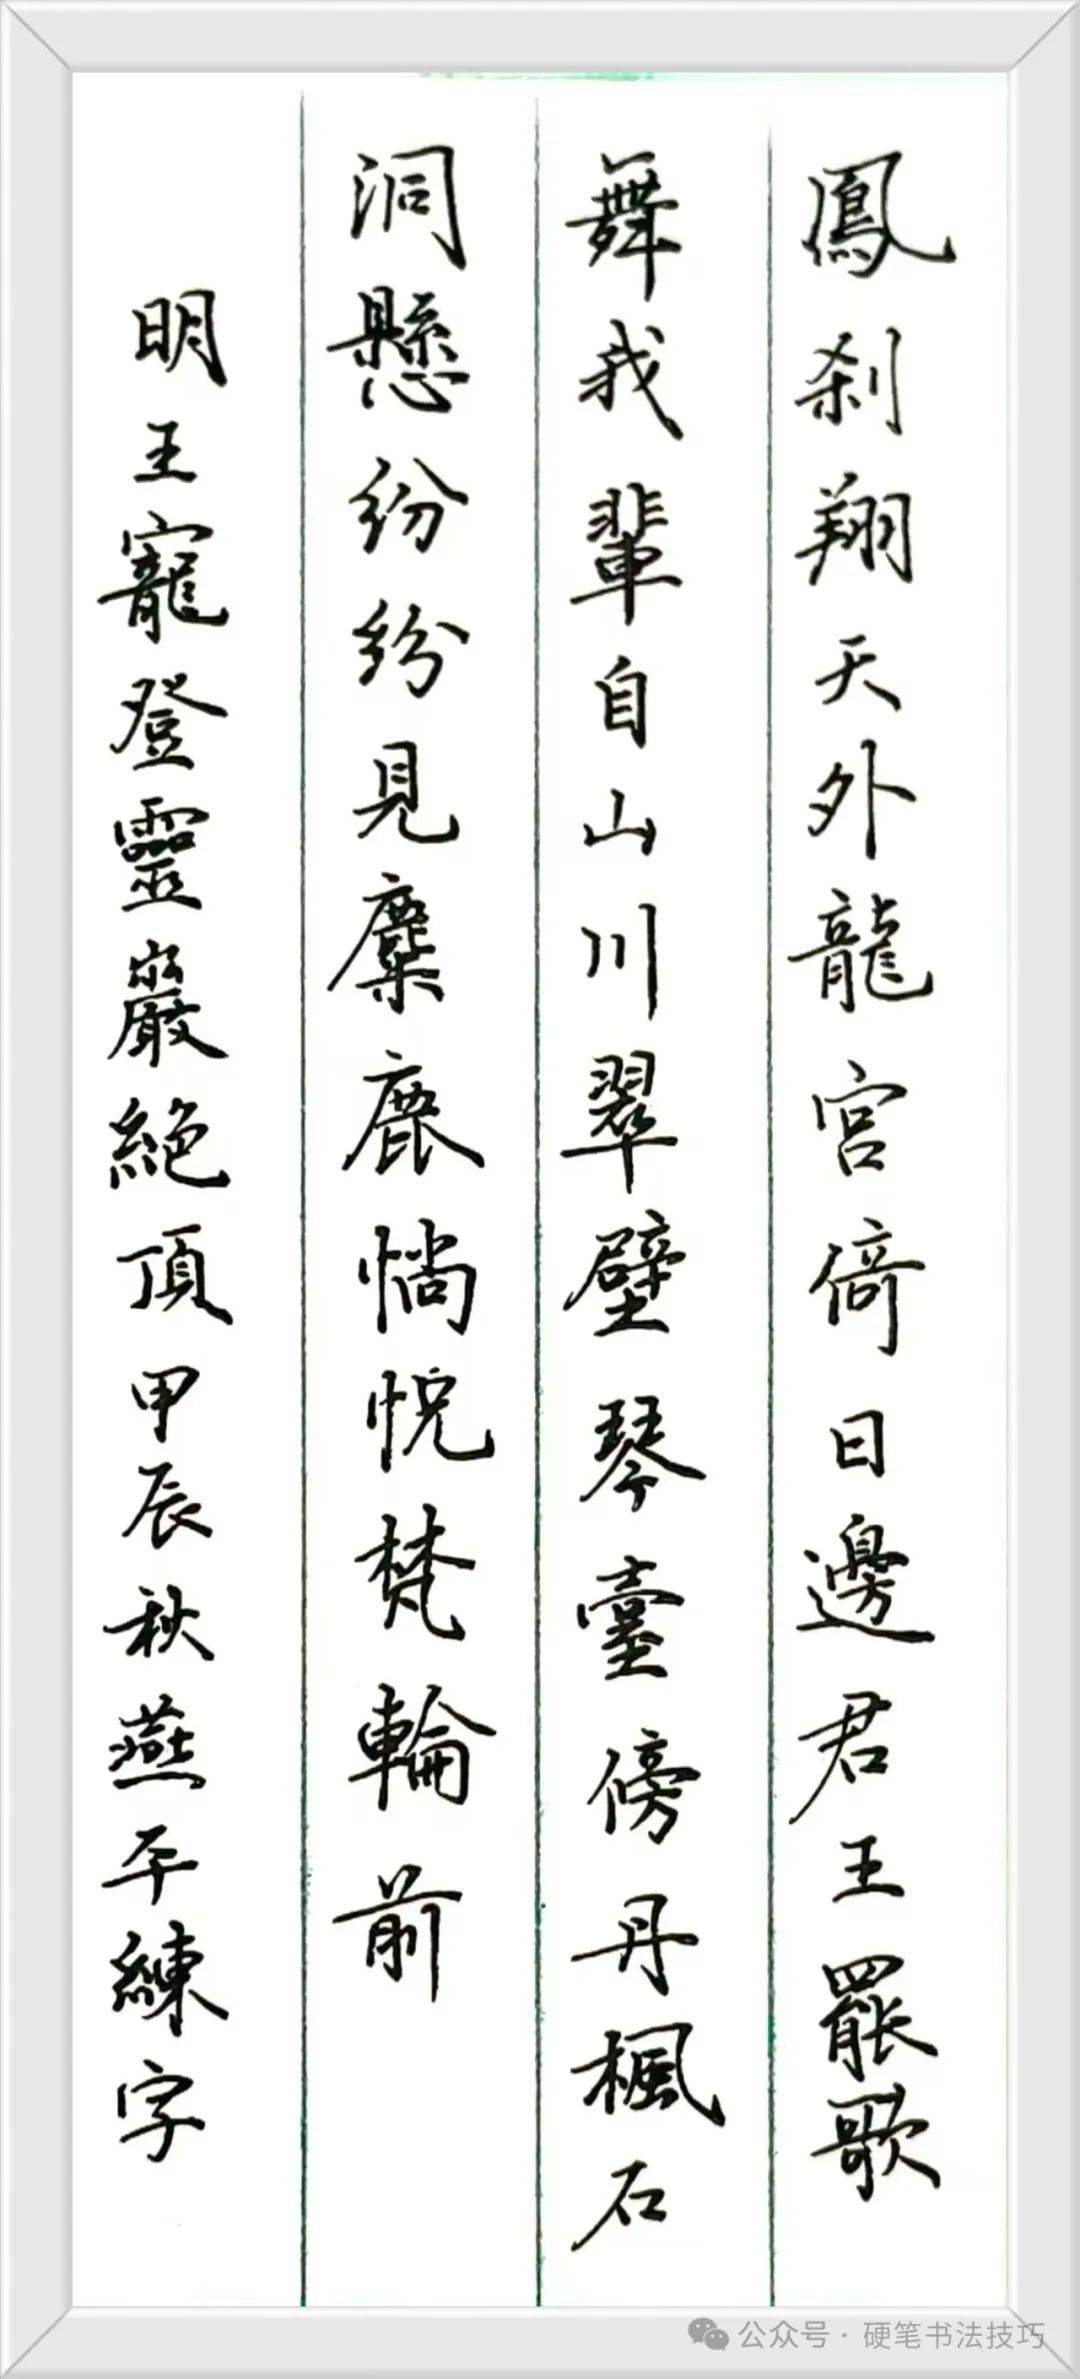 鳳刹翔天外龍宮倚日邊君王罷歌
舞我輩自山川翠壁琴臺傍丹楓石
洞懸紛紛見麋鹿惝怳梵輪前
明王寵登靈巖絕頂甲辰秋燕平練字
公众号·硬笔书法技巧